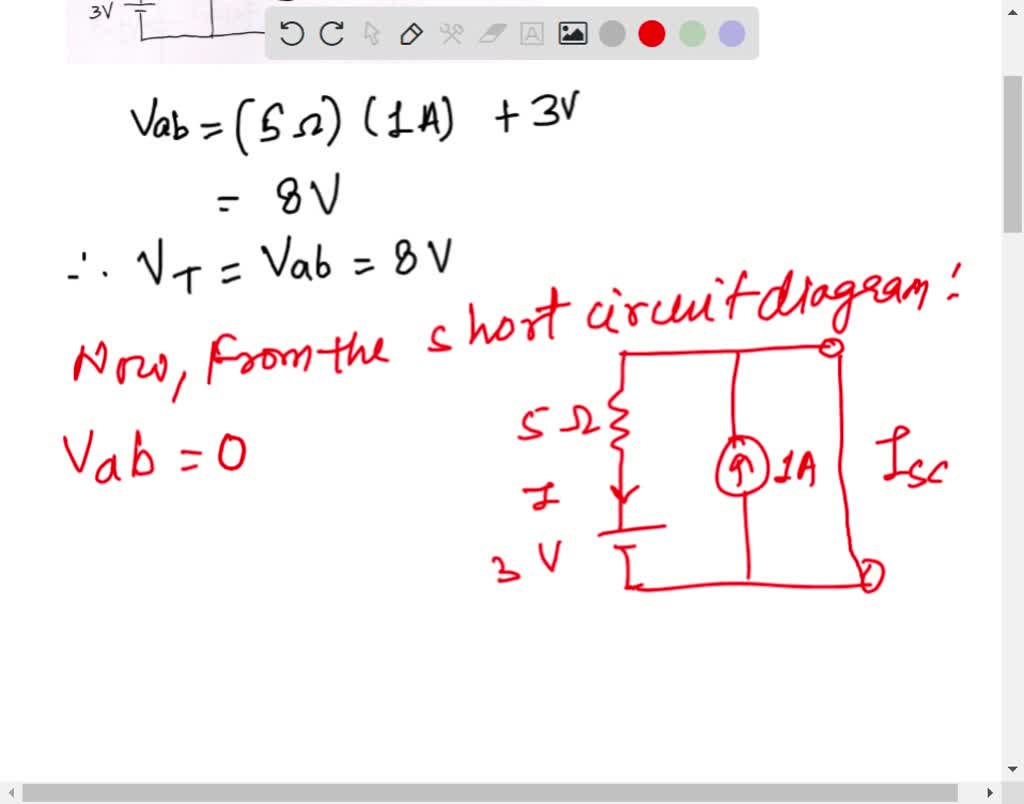 3V
Vab = (5Ω) (1A) + 3V
= 8V
∴ VT = Vab = 8V
Now, from the short circuit diagram:
Vab = 0
5Ω
I
3V
1A
Isc